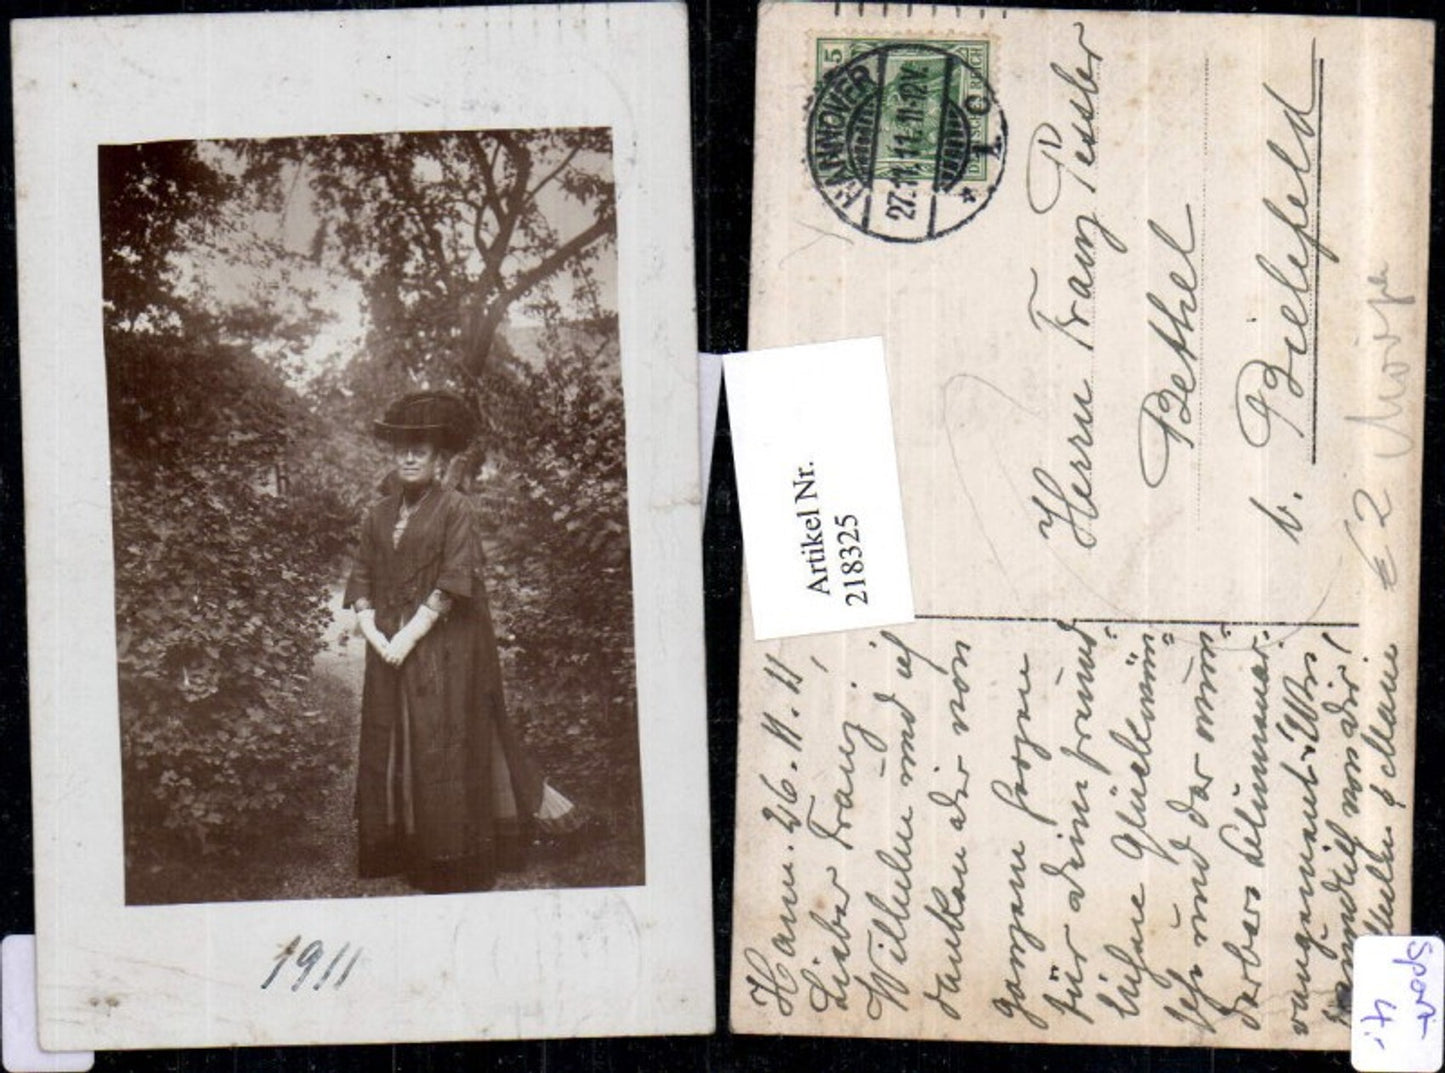 1911
HANNOVER
27.11.11.11-12V.
* 1. C
5
DEUTSCHES REICH
Artikel Nr.
218325
Herrn Franz Pessler
Bethel
b. Bielefeld
€ 2
Hann. 26. 11. 11,
Lieber Franz;
Wilhelm und ich
danken dir von
ganzem Herzen
für deine freund=
liche Glückwün=
sche und das wun=
derbare
mündlich von dir!
Sport